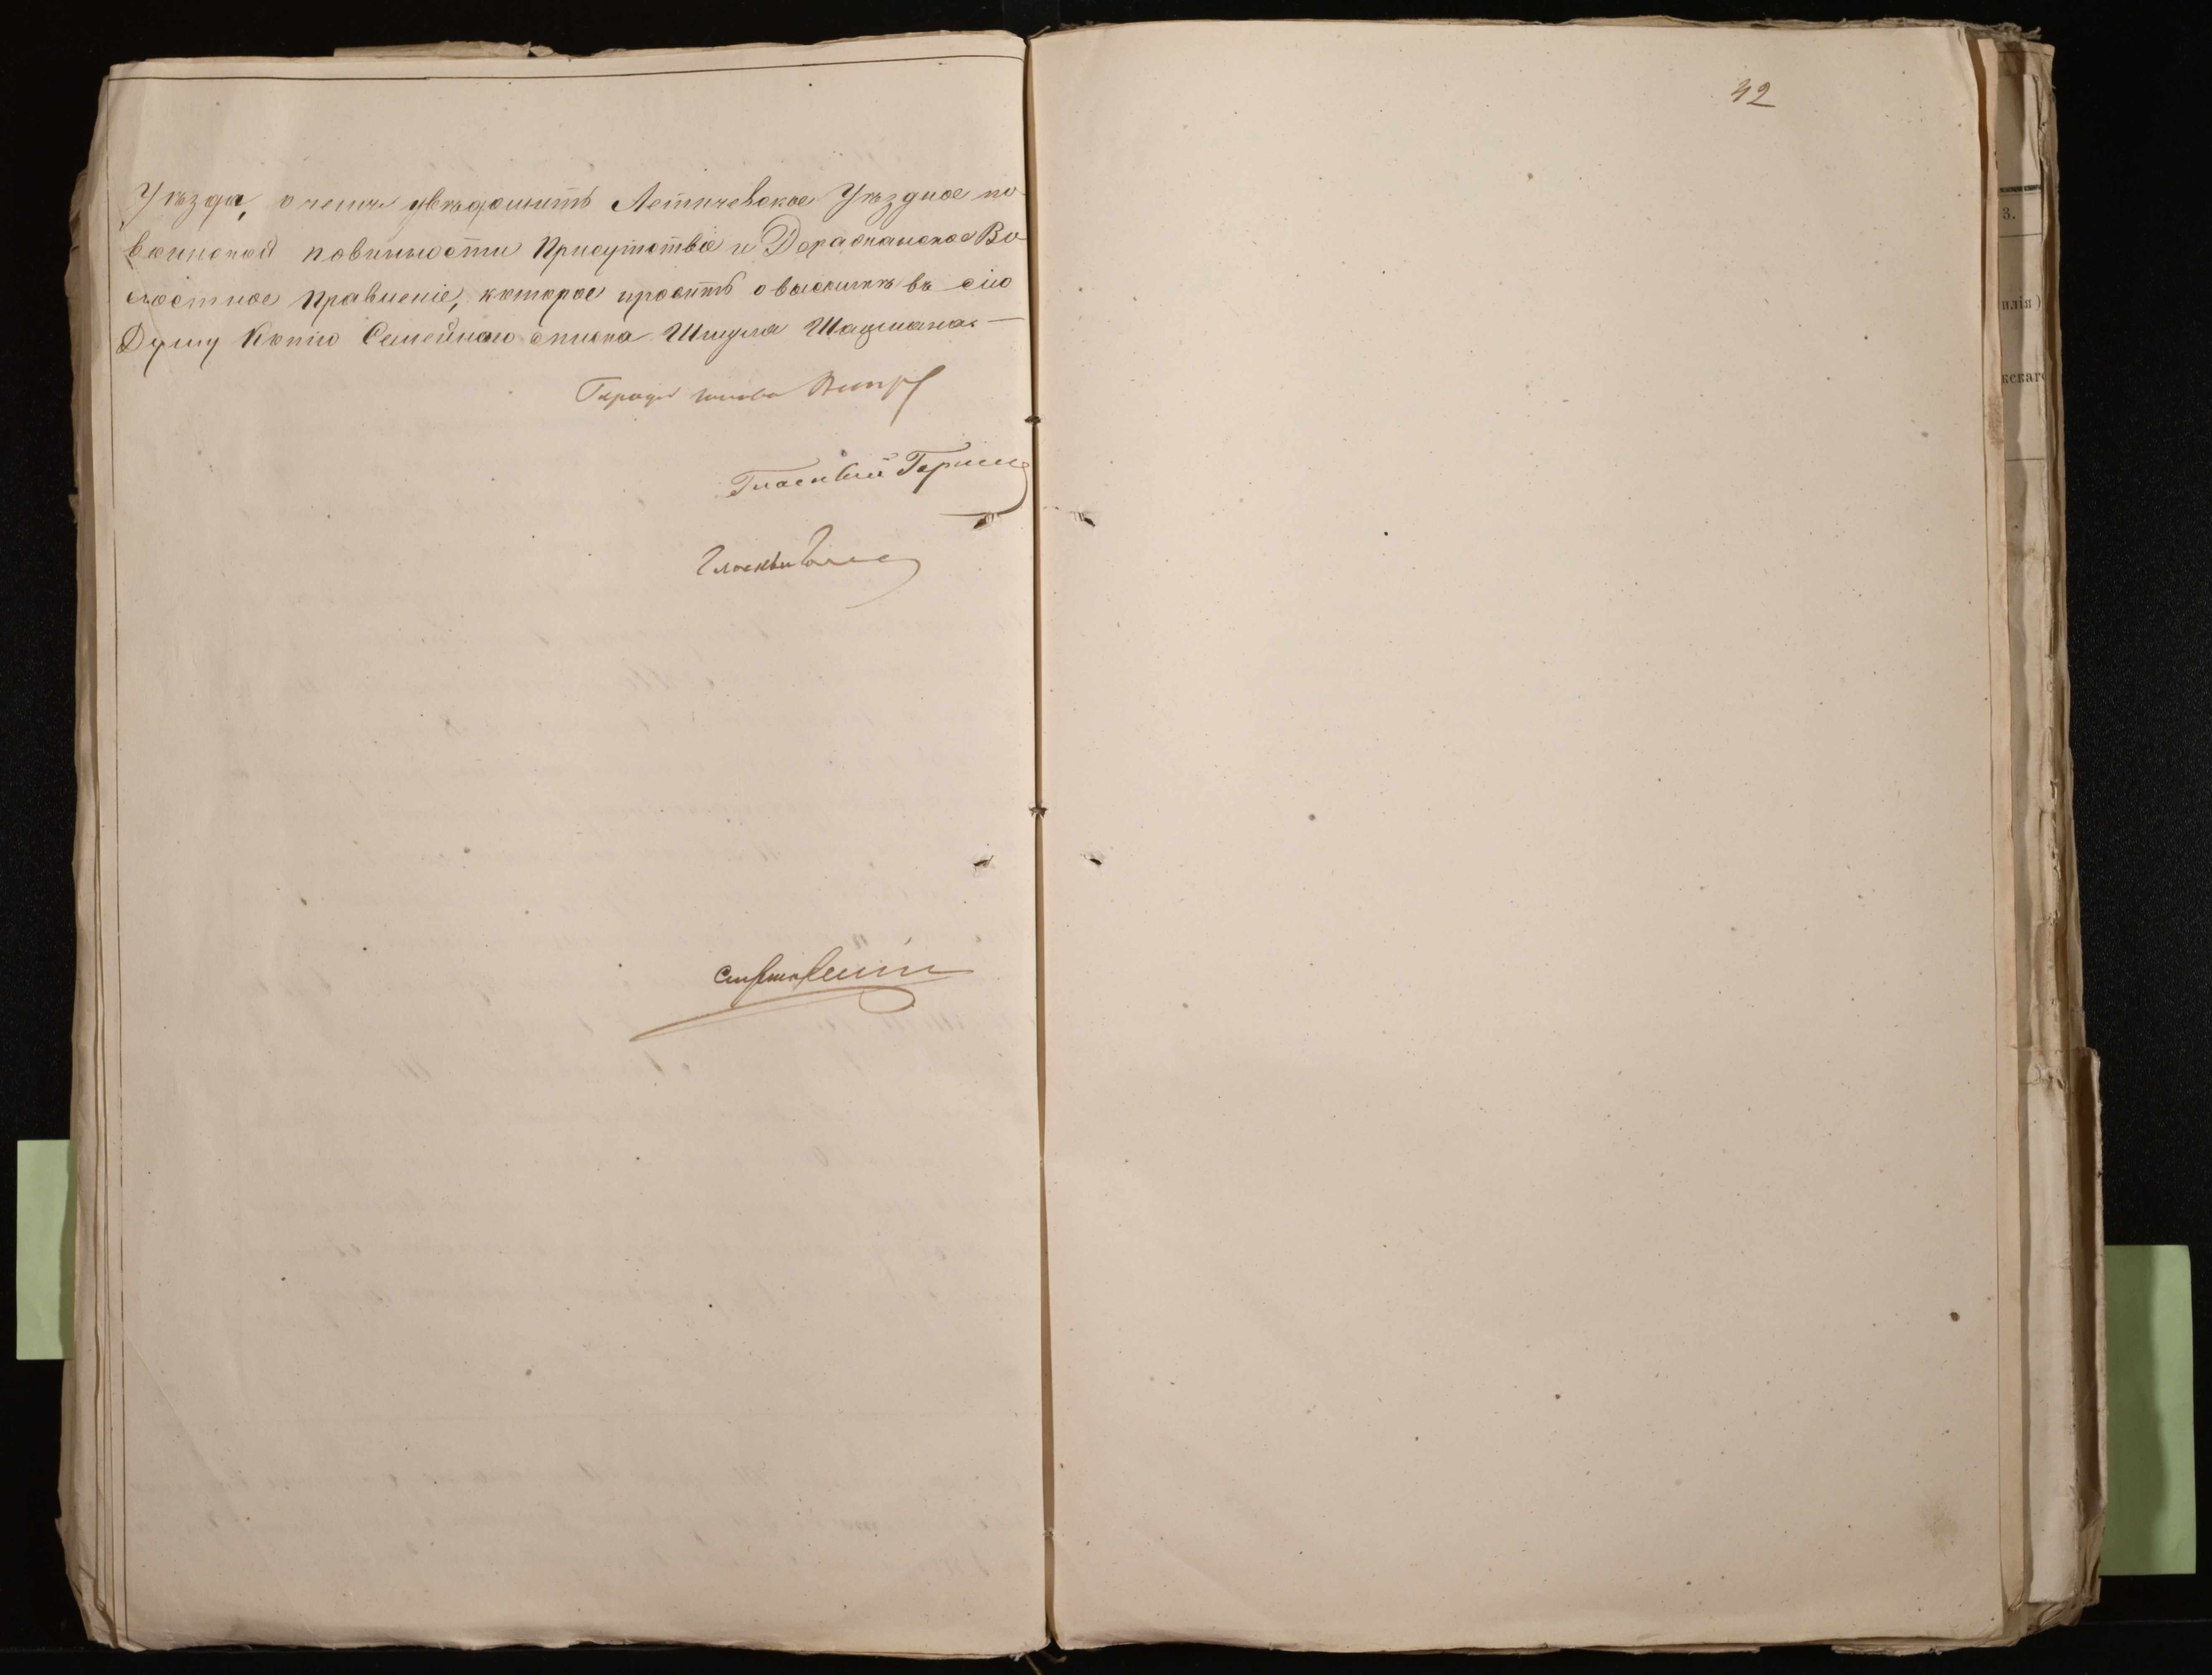 Уѣзда, о чемъ увѣдомить Летичевское Уѣздное по
воинской повинности Присутствіе и Деражнянское Во-
лостное Правленіе, которое просить о высылкѣ въ сію
Думу Копію Семейнаго списка Шмуля
Город голова
Гласный
Гласный
42
3.